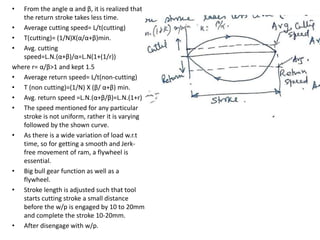 • From the angle α and β, it is realized that
the return stroke takes less time.
• Average cutting speed= L/t(cutting)
• T(cutting)= (1/N)X(α/α+β)min.
• Avg. cutting
speed=L.N(α+β)/α=L.N(1+(1/r))
where r= α/β>1 and kept 1.5
• Average return speed= L/t(non-cutting)
• T (non cutting)=(1/N) X (β/ α+β) min.
• Avg. return speed =L.N.(α+β/β)=L.N.(1+r)
• The speed mentioned for any particular
stroke is not uniform, rather it is varying
followed by the shown curve.
• As there is a wide variation of load w.r.t
time, so for getting a smooth and Jerk-
free movement of ram, a flywheel is
essential.
• Big bull gear function as well as a
flywheel.
• Stroke length is adjusted such that tool
starts cutting stroke a small distance
before the w/p is engaged by 10 to 20mm
and complete the stroke 10-20mm.
• After disengage with w/p.
stroke
Avg. Cutting
Speed
Cutting
Return
Av.
Return
speed
Stroke